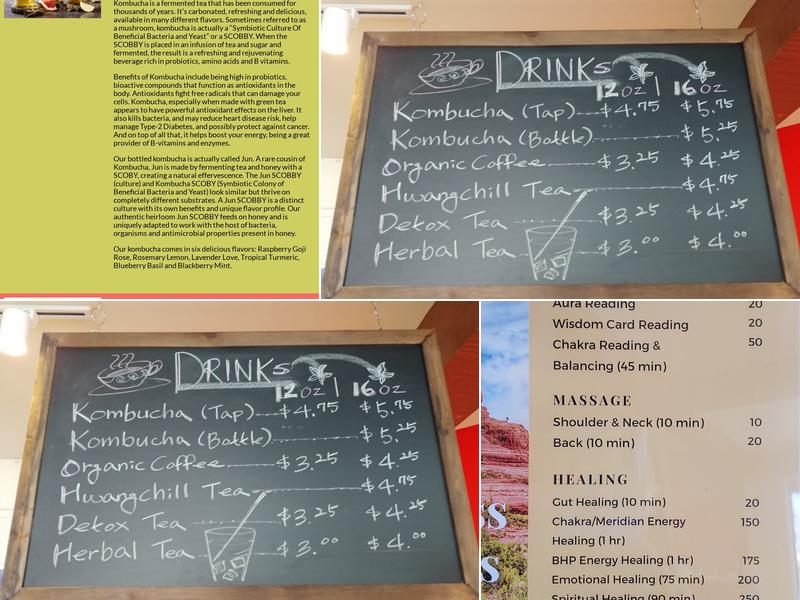 Kombucha is a fermented tea that has been consumed for
thousands of years. It's carbonated, refreshing and delicious,
available in many different flavors. Sometimes referred to as
a mushroom, kombucha is actually a "Symbiotic Culture Of
Beneficial Bacteria and Yeast" or a SCOBBY. When the
SCOBBY is placed in an infusion of tea and sugar and
fermented, the result is a refreshing and rejuvenating
beverage rich in probiotics, amino acids and B vitamins.
Benefits of Kombucha include being high in probiotics,
bioactive compounds that function as antioxidants in the
body. Antioxidants fight free radicals that can damage your
cells. Kombucha, especially when made with green tea
appears to have powerful antioxidant effects on the liver. It
also kills bacteria, and may reduce heart disease risk, help
manage Type-2 Diabetes, and possibly protect against cancer.
And on top of all that, it helps boot your energy, being a great
provider of B-vitamins and enzymes.
Our bottled kombucha is actually called Jun. A rare cousin of
Kombucha, Jun is made by fermenting tea and honey with a
SCOBY, creating a natural effervescence. The Jun SCOBBY
(culture) and Kombucha SCOBY (Symbiotic Colony of
Beneficial Bacteria and Yeast) look similar but thrive on
completely different substrates. A Jun SCOBBY is a distinct
culture with its own benefits and unique flavor profile. Our
authentic heirloom Jun SCOBBY feeds on honey and is
uniquely adapted to work with the host of bacteria,
organisms and antimicrobial properties present in honey.
Our kombucha comes in six delicious flavors: Raspberry Goji
Rose, Rosemary Lemon, Lavender Love, Tropical Turmeric,
Blueberry Basil and Blackberry Mint.
DRINKS
12 oz | 16 oz
Kombucha (Tap) $4.75 $5.75
Kombucha (Bottle) $5.25
Organic Coffee $3.25 $4.25
Hwangchill Tea $4.75
Detox Tea $3.25 $4.25
Herbal Tea $3.00 $4.00
DRINKS
12 oz | 16 oz
Kombucha (Tap) $4.75 $5.75
Kombucha (Bottle) $5.25
Organic Coffee $3.25 $4.25
Hwangchill Tea $4.75
Detox Tea $3.25 $4.25
Herbal Tea $3.00 $4.00
Aura Reading 20
Wisdom Card Reading 20
Chakra Reading & 50
Balancing (45 min)
MASSAGE
Shoulder & Neck (10 min) 10
Back (10 min) 20
HEALING
Gut Healing (10 min) 20
Chakra/Meridian Energy 150
Healing (1 hr)
BHP Energy Healing (1 hr) 175
Emotional Healing (75 min) 200
Spiritual Healing (90 min) 250